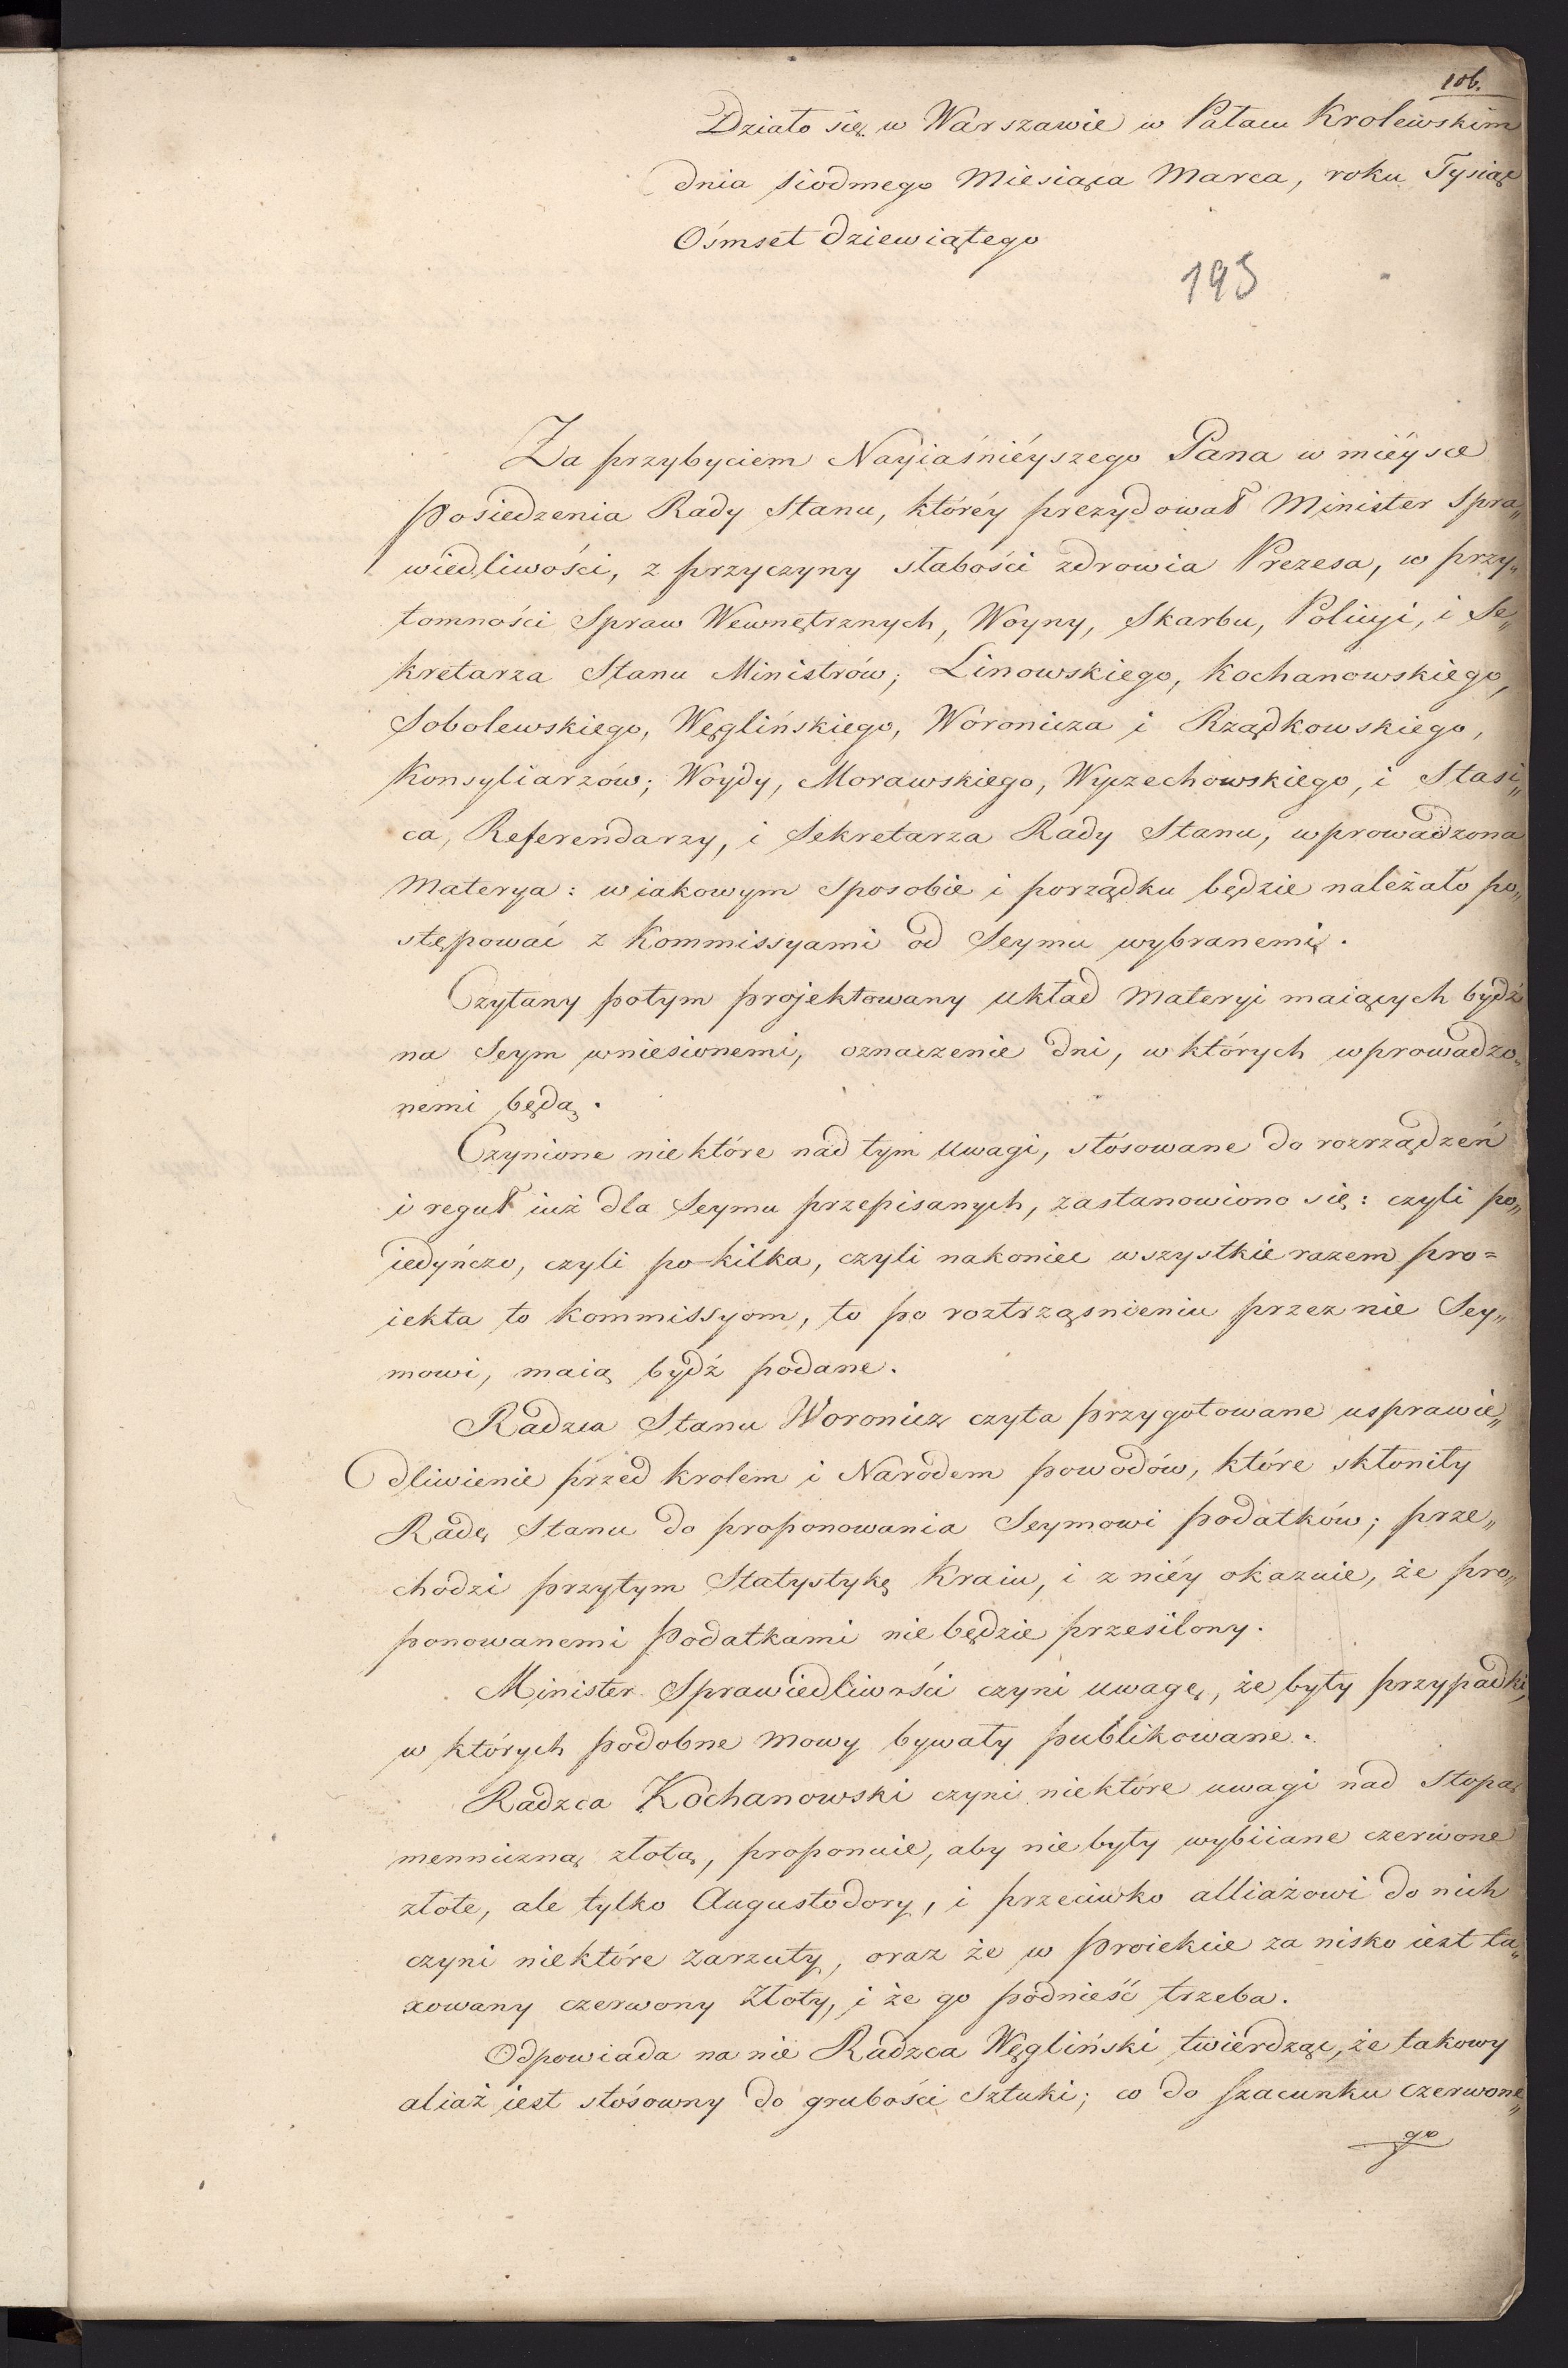 106.
Działo się w Warszawie w Pałacu Krolewskim
dnia siódmego Miesiąca Marca, roku Tysiąc
Ośmset dziewiątego
195
Za przybyciem Nayiaśnieyszego Pana w mieysce
Posiedzenia Rady Stanu, któréy prezydował Minister Spra„
wiedliwości, z przyczyny słabości zdrowia Prezesa, w przy„
tomności Spraw Wewnętrznych, Woyny, Skarbu, Policyi, i Se„
kretarza Stanu Ministrów; Linowskiego, Kochanowskiego,
Sobolewskiego, Węglińskiego, Woronicza i Rządkowskiego,
Konsyliarzów; Woydy, Morawskiego, Wyczechowskiego, i Stasi„
ca, Referendarzy, i Sekretarza Rady Stanu, wprowadzona
materya: w iakowym sposobie i porządku będzie należało po„
stępować z Kommissyami od Seymu wybranemi.
Czytany potym projektowany układ materyi maiących bydź
na Seym wniesionemi, oznaczenie dni, w których wprowadzo„
nemi będą.
Czynione niektóre nad tym uwagi, stósowane do rozrządzeń
i reguł iuż dla Seymu przepisanych, zastanowiono się: czyli po„
iedyńczo, czyli po kilka, czyli nakoniec wszystkie razem pro=
iekta to Kommissyom, to po roztrząsnieniu przez nie Sey„
mowi, maią bydź podane.
Radzca Stanu Woronicz czyta przygotowane usprawie„
dliwienie przed Krolem i Narodem powodów, które skłoniły
Radę Stanu do proponowania Seymowi podatków; prze„
chodzi przytym Statystykę Kraiu, i z niéy okazuie, że pro„
ponowanemi Podatkami nie będzie przesilony.
Minister Sprawiedliwości czyni uwagę, że były przypadki,
w których podobne mowy bywały publikowane.
Radzca Kochanowski czyni niektóre uwagi nad stopą
menniczną złotą, proponuie, aby nie były wybiiane czerwone
złote, ale tylko Augustodory, i przeciwko alliażowi do nich
czyni niektóre zarzuty, oraz że w proiekcie za nisko iest ta„
xowany czerwony Złoty, i że go podnieść trzeba.
Odpowiada na nie Radzca Węgliński twierdząc, że takowy
aliaż iest stósowny do grubości sztuki; co do szacunku czerwone„
go